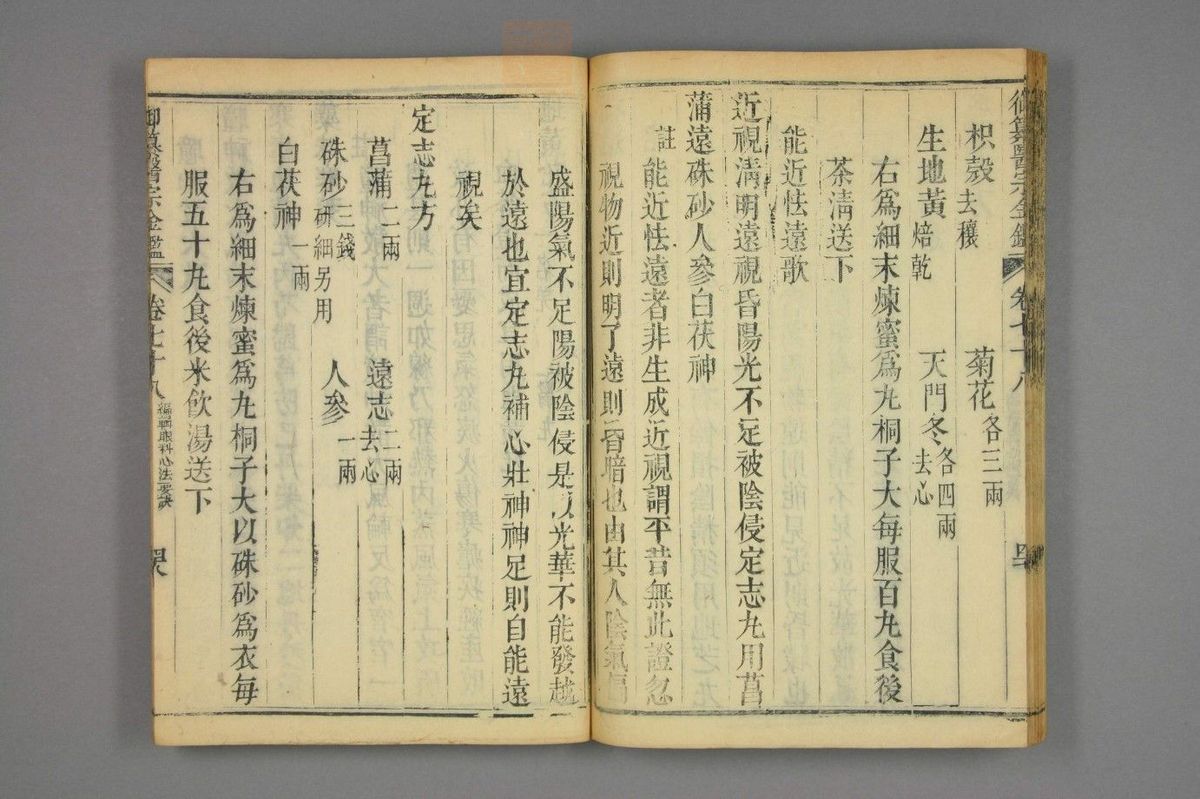 御纂醫宗金鑑 卷七十八
枳殼去穰 菊花各三兩
生地黃焙乾 天門冬去心各四兩
右爲細末煉蜜爲丸桐子大每服百丸食後
茶清送下
能近怯遠歌
近視清明遠視昏陽光不足被陰侵定志丸用菖
蒲遠硃砂人參白茯神
註 能近怯遠者非生成近視謂平昔無此證忽
視物近則明了遠則昏暗也由其人陰氣偏
盛陽氣不足陽被陰侵是以光華不能發越
於遠也宜定志丸補心壯神神足則自能遠
視矣
定志丸方
菖蒲二兩 遠志去心二兩
硃砂研細另用三錢 人參一兩
白茯神一兩
右爲細末煉蜜爲丸桐子大以硃砂爲衣每
服五十丸食後米飲湯送下
御纂醫宗金鑑 卷七十八 編輯眼科心法要訣